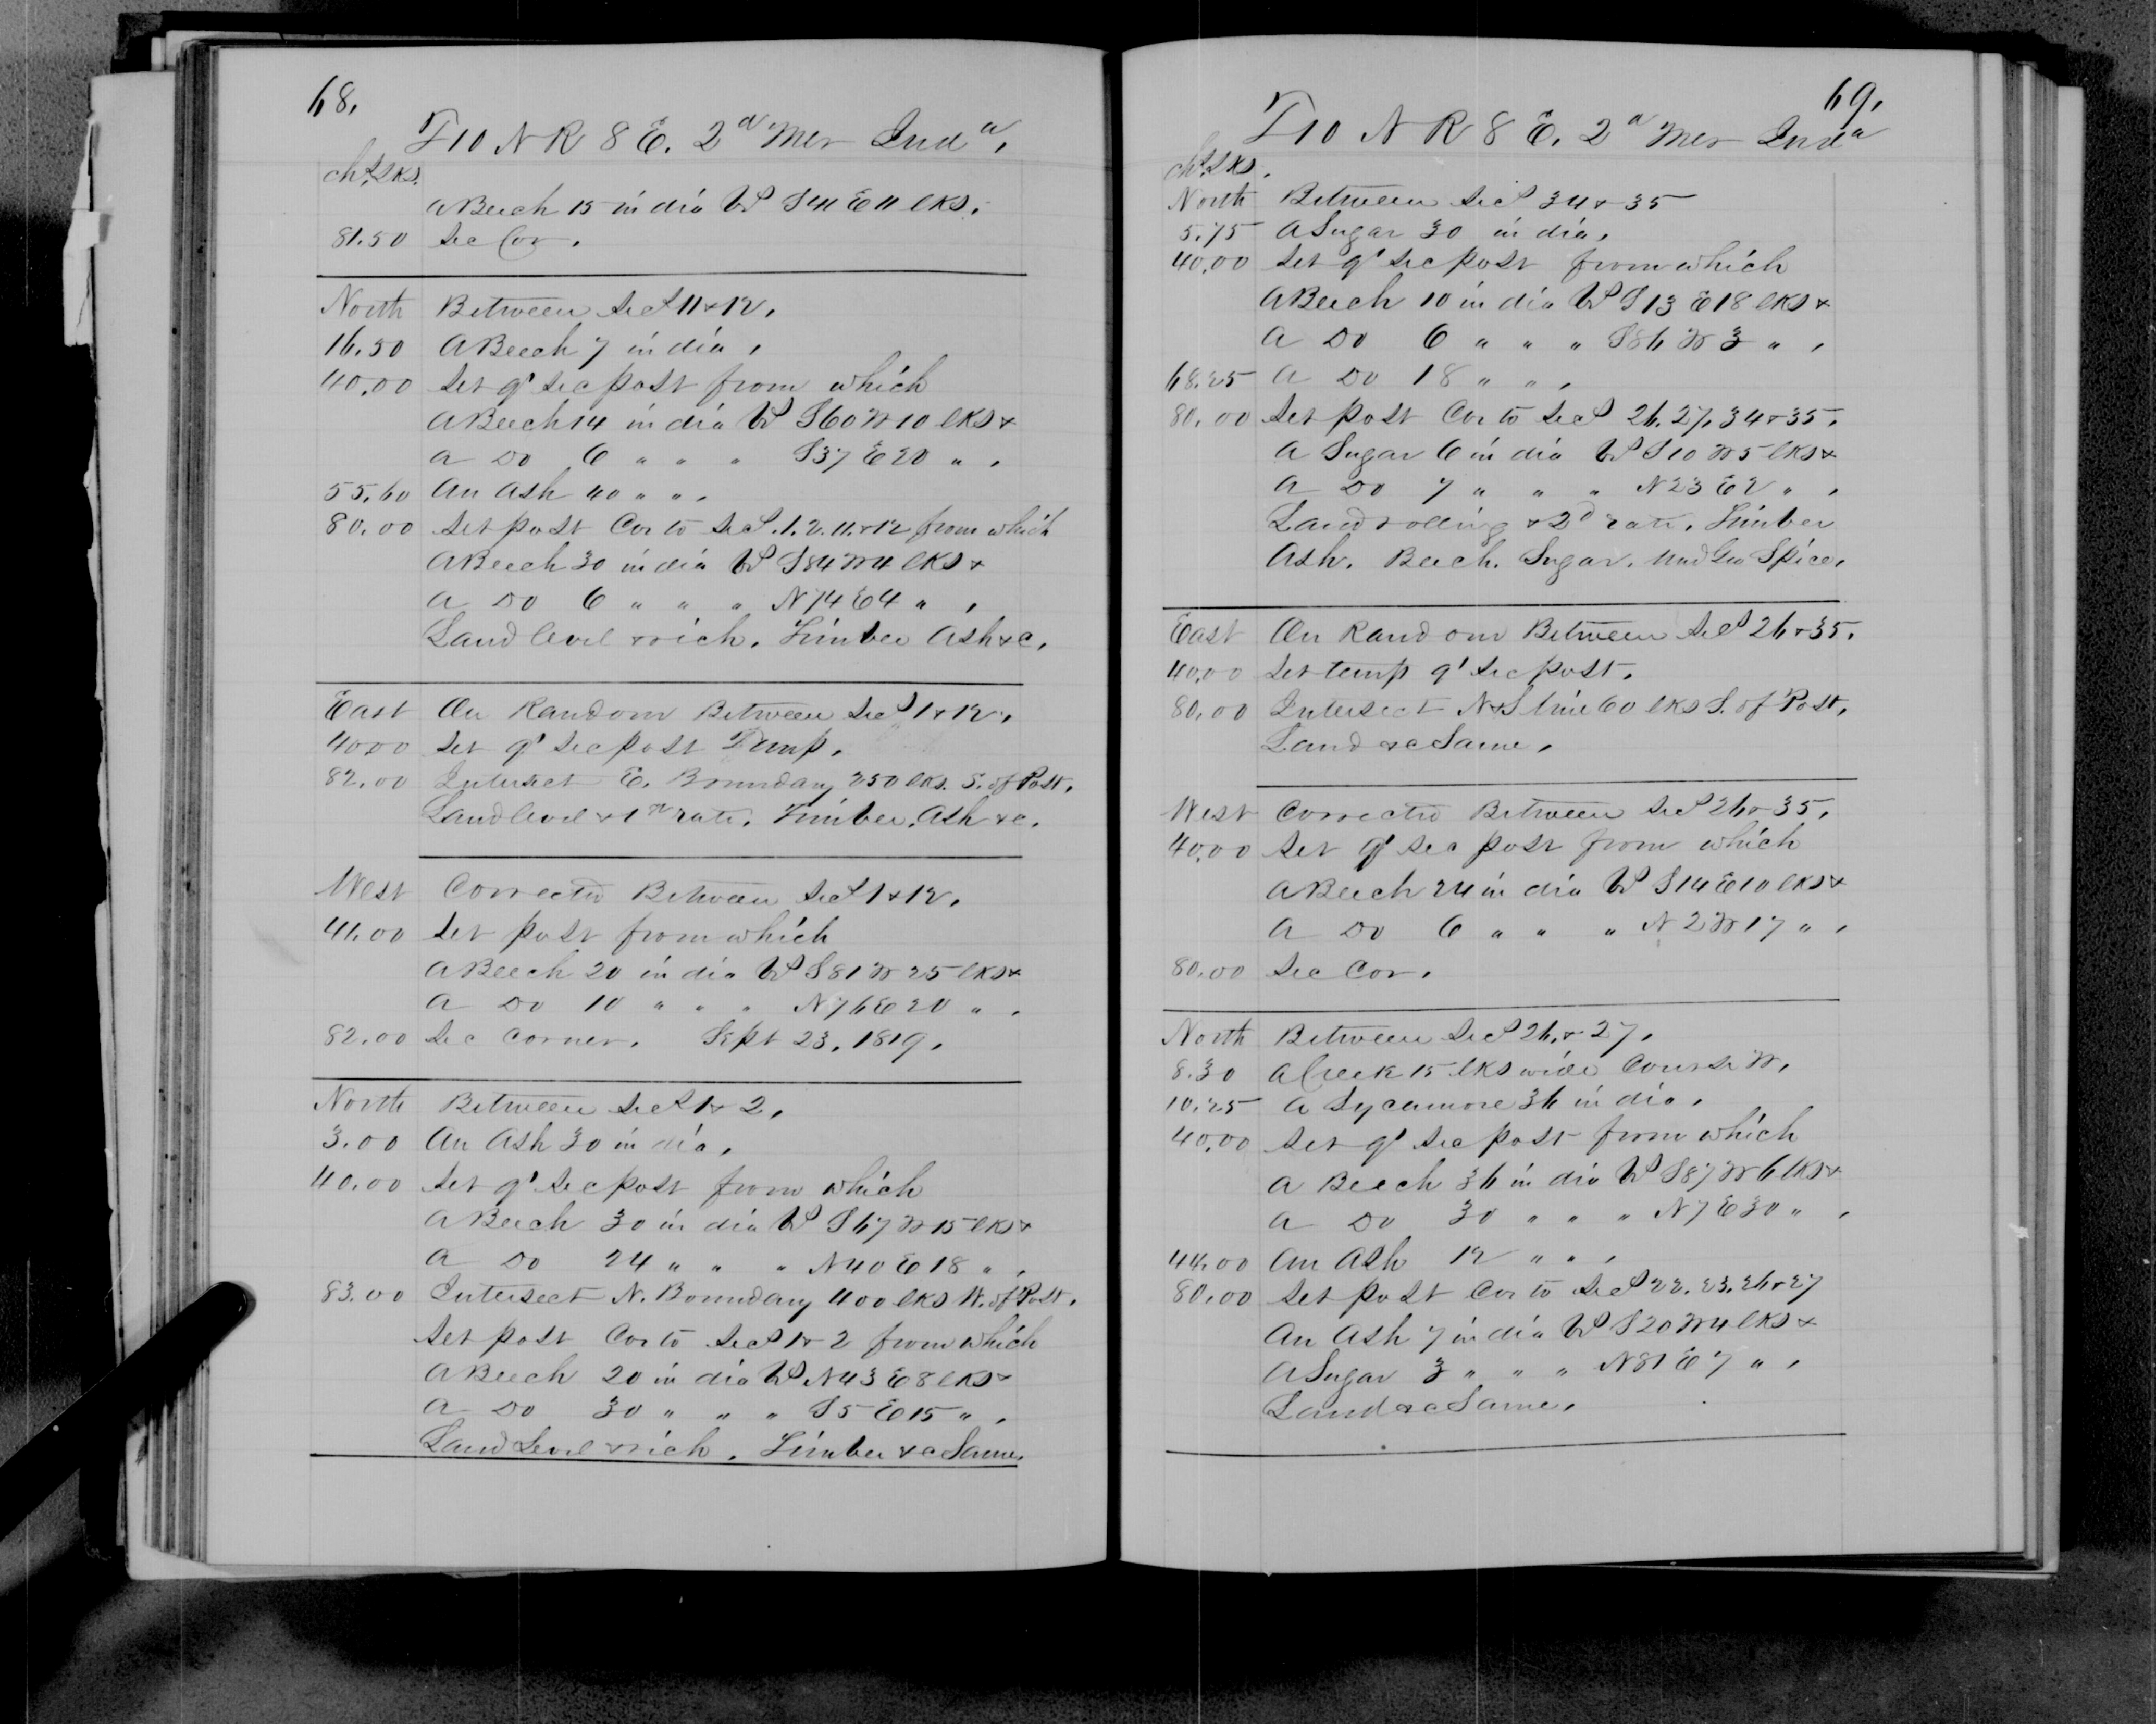 68.
T 10 N R 8 E. 2d Mer Inda.
chs. Lks.
A Beech 15 in dia Bs S 41 E 11 lks.
81.50 Sec Cor.
North Between Secs 11 & 12.
16.50 A Beech 7 in dia.
40.00 Set qr Sec post from which
A Beech 14 in dia Bs S 60 W 10 lks &
a Do 6 " " " S 37 E 20 " .
55.60 An Ash 40 " " .
80.00 Set post Cor to Secs. 1. 2. 11. & 12 from which
A Beech 30 in dia Bs S 84 W 4 lks &
a Do 6 " " " N 74 E 4 " .
Land level & rich. Timber Ash &c.
East On Random Between Secs 1 & 12.
40.00 Set qr Sec post Temp.
82.00 Intersect E. Boundary 250 lks. S. of Post.
Land level & 1st rate. Timber. Ash &c.
West Corrected Between Secs 1 & 12.
41.00 Set post from which
A Beech 20 in dia Bs S 81 W 25 lks &
a Do 10 " " " N 76 E 20 " .
82.00 Sec Corner. Sept 23. 1819.
North Between Secs 1 & 2.
3.00 An Ash 30 in dia.
40.00 Set qr Sec post from which
A Beech 30 in dia Bs S 67 W 15 lks &
a Do 24 " " " N 40 E 18 " .
83.00 Intersect N. Boundary 400 lks W. of Post.
Set post Cor to Secs 1 & 2 from which
A Beech 20 in dia Bs N 43 E 8 lks &
a Do 30 " " " S 5 E 15 " .
Land Level & rich. Timber &c Same.
69.
T 10 N R 8 E. 2d Mer Inda
chs. Lks.
North Between Secs 34 & 35
5.75 A Sugar 30 in dia.
40.00 Set qr Sec post from which
A Beech 10 in dia Bs S 13 E 18 lks &
a Do 6 " " " S 86 W 3 " .
68.25 a Do 18 " " .
80.00 Set post Cor to Secs 26. 27. 34 & 35.
A Sugar 6 in dia Bs S 10 W 5 lks &
a Do 7 " " " N 23 E 2 " .
Land rolling & 2d rate. Timber
Ash. Beech. Sugar. Und Gro Spice.
East On Random Between Secs 26 & 35.
40.00 Set temp qr Sec post.
80.00 Intersect N & S line 60 lks S. of Post.
Land &c Same.
West Corrected Between Secs 26 & 35.
40.00 Set qr Sec post from which
A Beech 24 in dia Bs S 14 E 10 lks &
a Do 6 " " " N 2 W 17 " .
80.00 Sec Cor.
North Between Secs 26. & 27.
8.30 A Creek 15 lks wide Course W.
10.25 A Sycamore 36 in dia.
40.00 Set qr Sec post from which
A Beech 36 in dia Bs S 87 W 6 lks &
a Do 30 " " " N 7 E 30 " .
44.00 An Ash 12 " " .
80.00 Set post Cor to Secs 22. 23. 26 & 27
An Ash 7 in dia Bs S 20 W 4 lks &
A Sugar 3 " " " N 81 E 7 " .
Land &c Same.